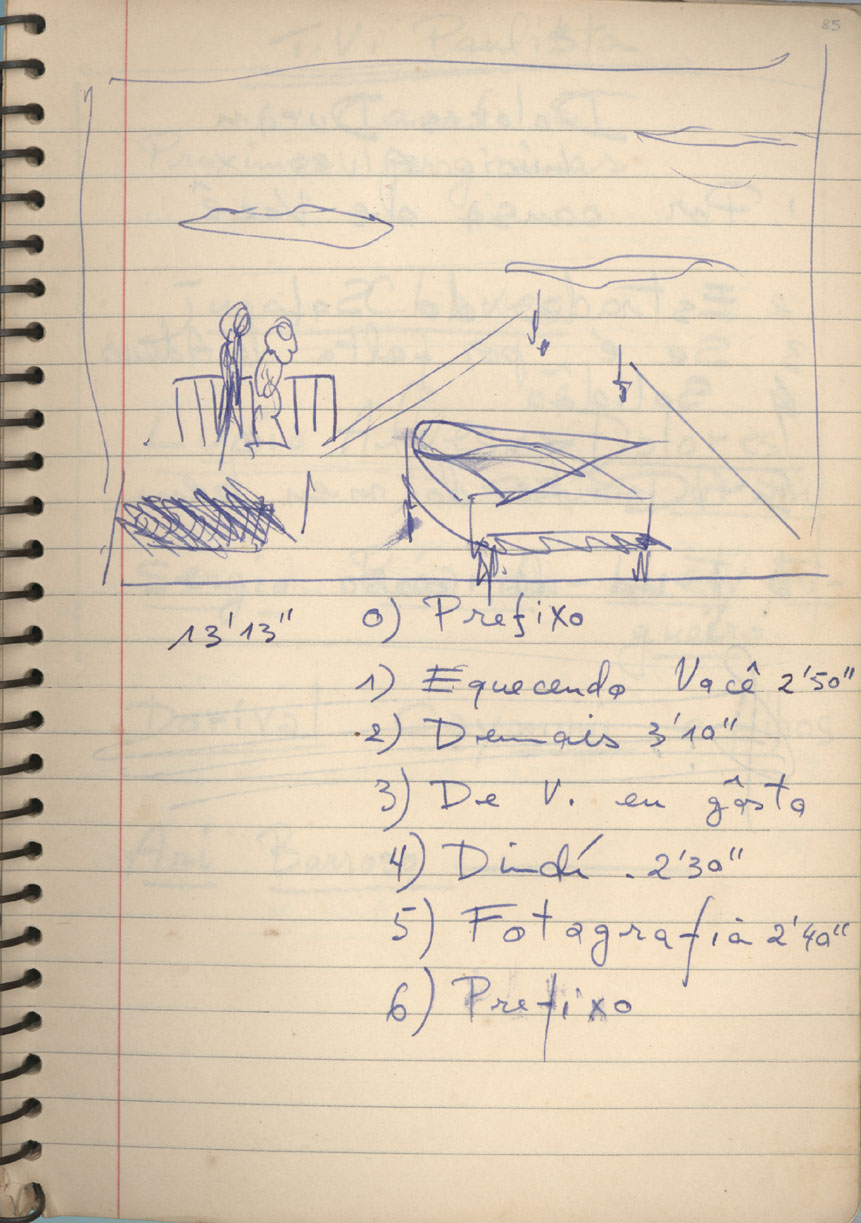 85
13'13"
0) Prefixo
1) Equecendo Você 2'50"
2) Demais 3'10"
3) De V. eu gôsto
4) Dindí . 2'30"
5) Fotografia 2'40"
6) Prefixo